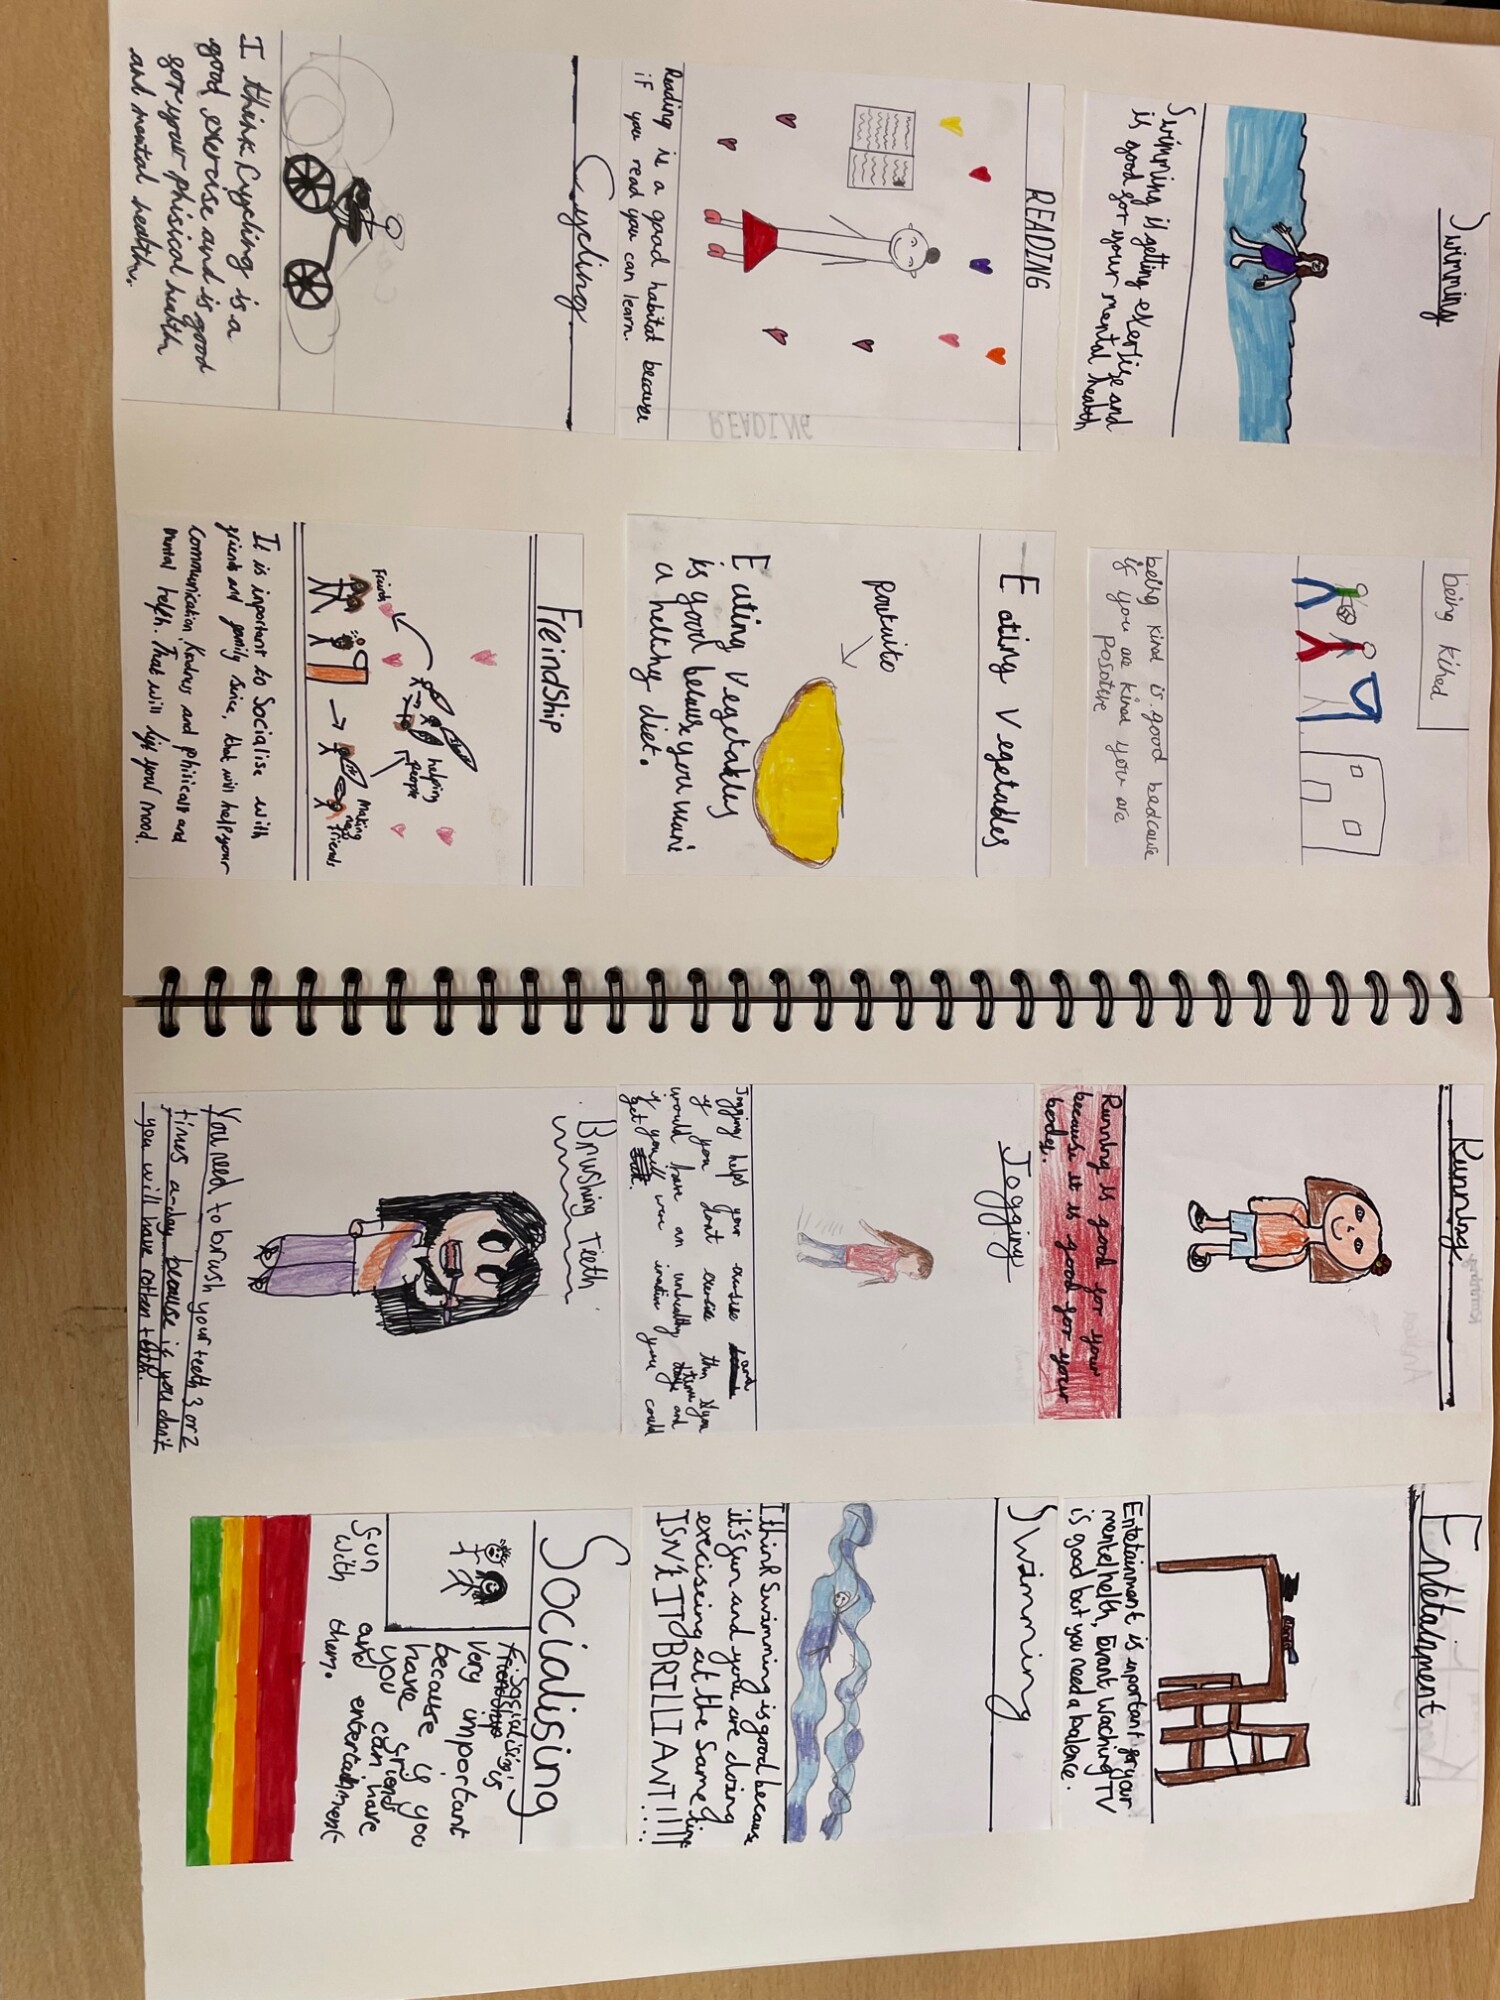 Swimming
Swimming is getting exertise and
is good for your mental health
being kined
being kind is good beacause
if you are kined you are
Possitive
READING
READING
Reading is a good habitat because
if you read you can learn.
Eating Vegetables
Poutuito
Eating Vegetables
is good because you
a helthy diet.
Cycling
I think Cycling is a
good exercise and is good
for your phisical health
and mental health.
FreindShip
Friends
helping
people
Making
new
friends
It is important to Socialise with
friends and family since, that will help your
Communication, Kindness and phiscall and
mental helth. That will lift your mood.
Running
Running is good for your
because it is good for your
body.
Entetainment
Entetainment is important for your
mentel helth, Evant waching TV
is good but you need a balence.
Jogging
Jogging helps your excersise and
if you dont exersise then you
would have an unhealthy and
if you'll
get
Swimming
I think Swimming is good because
it's fun and you are doing
exerciseing at the same time
ISN'T IT BRILLIANT!!!!
Brushing Teeth
You need to brush your teeth 3 or 2
times a day because if you don't
you will have rotten teeth.
Socialising
Socialising is
very important
because if you
have friends
you can have
and entertainment
fun with them.